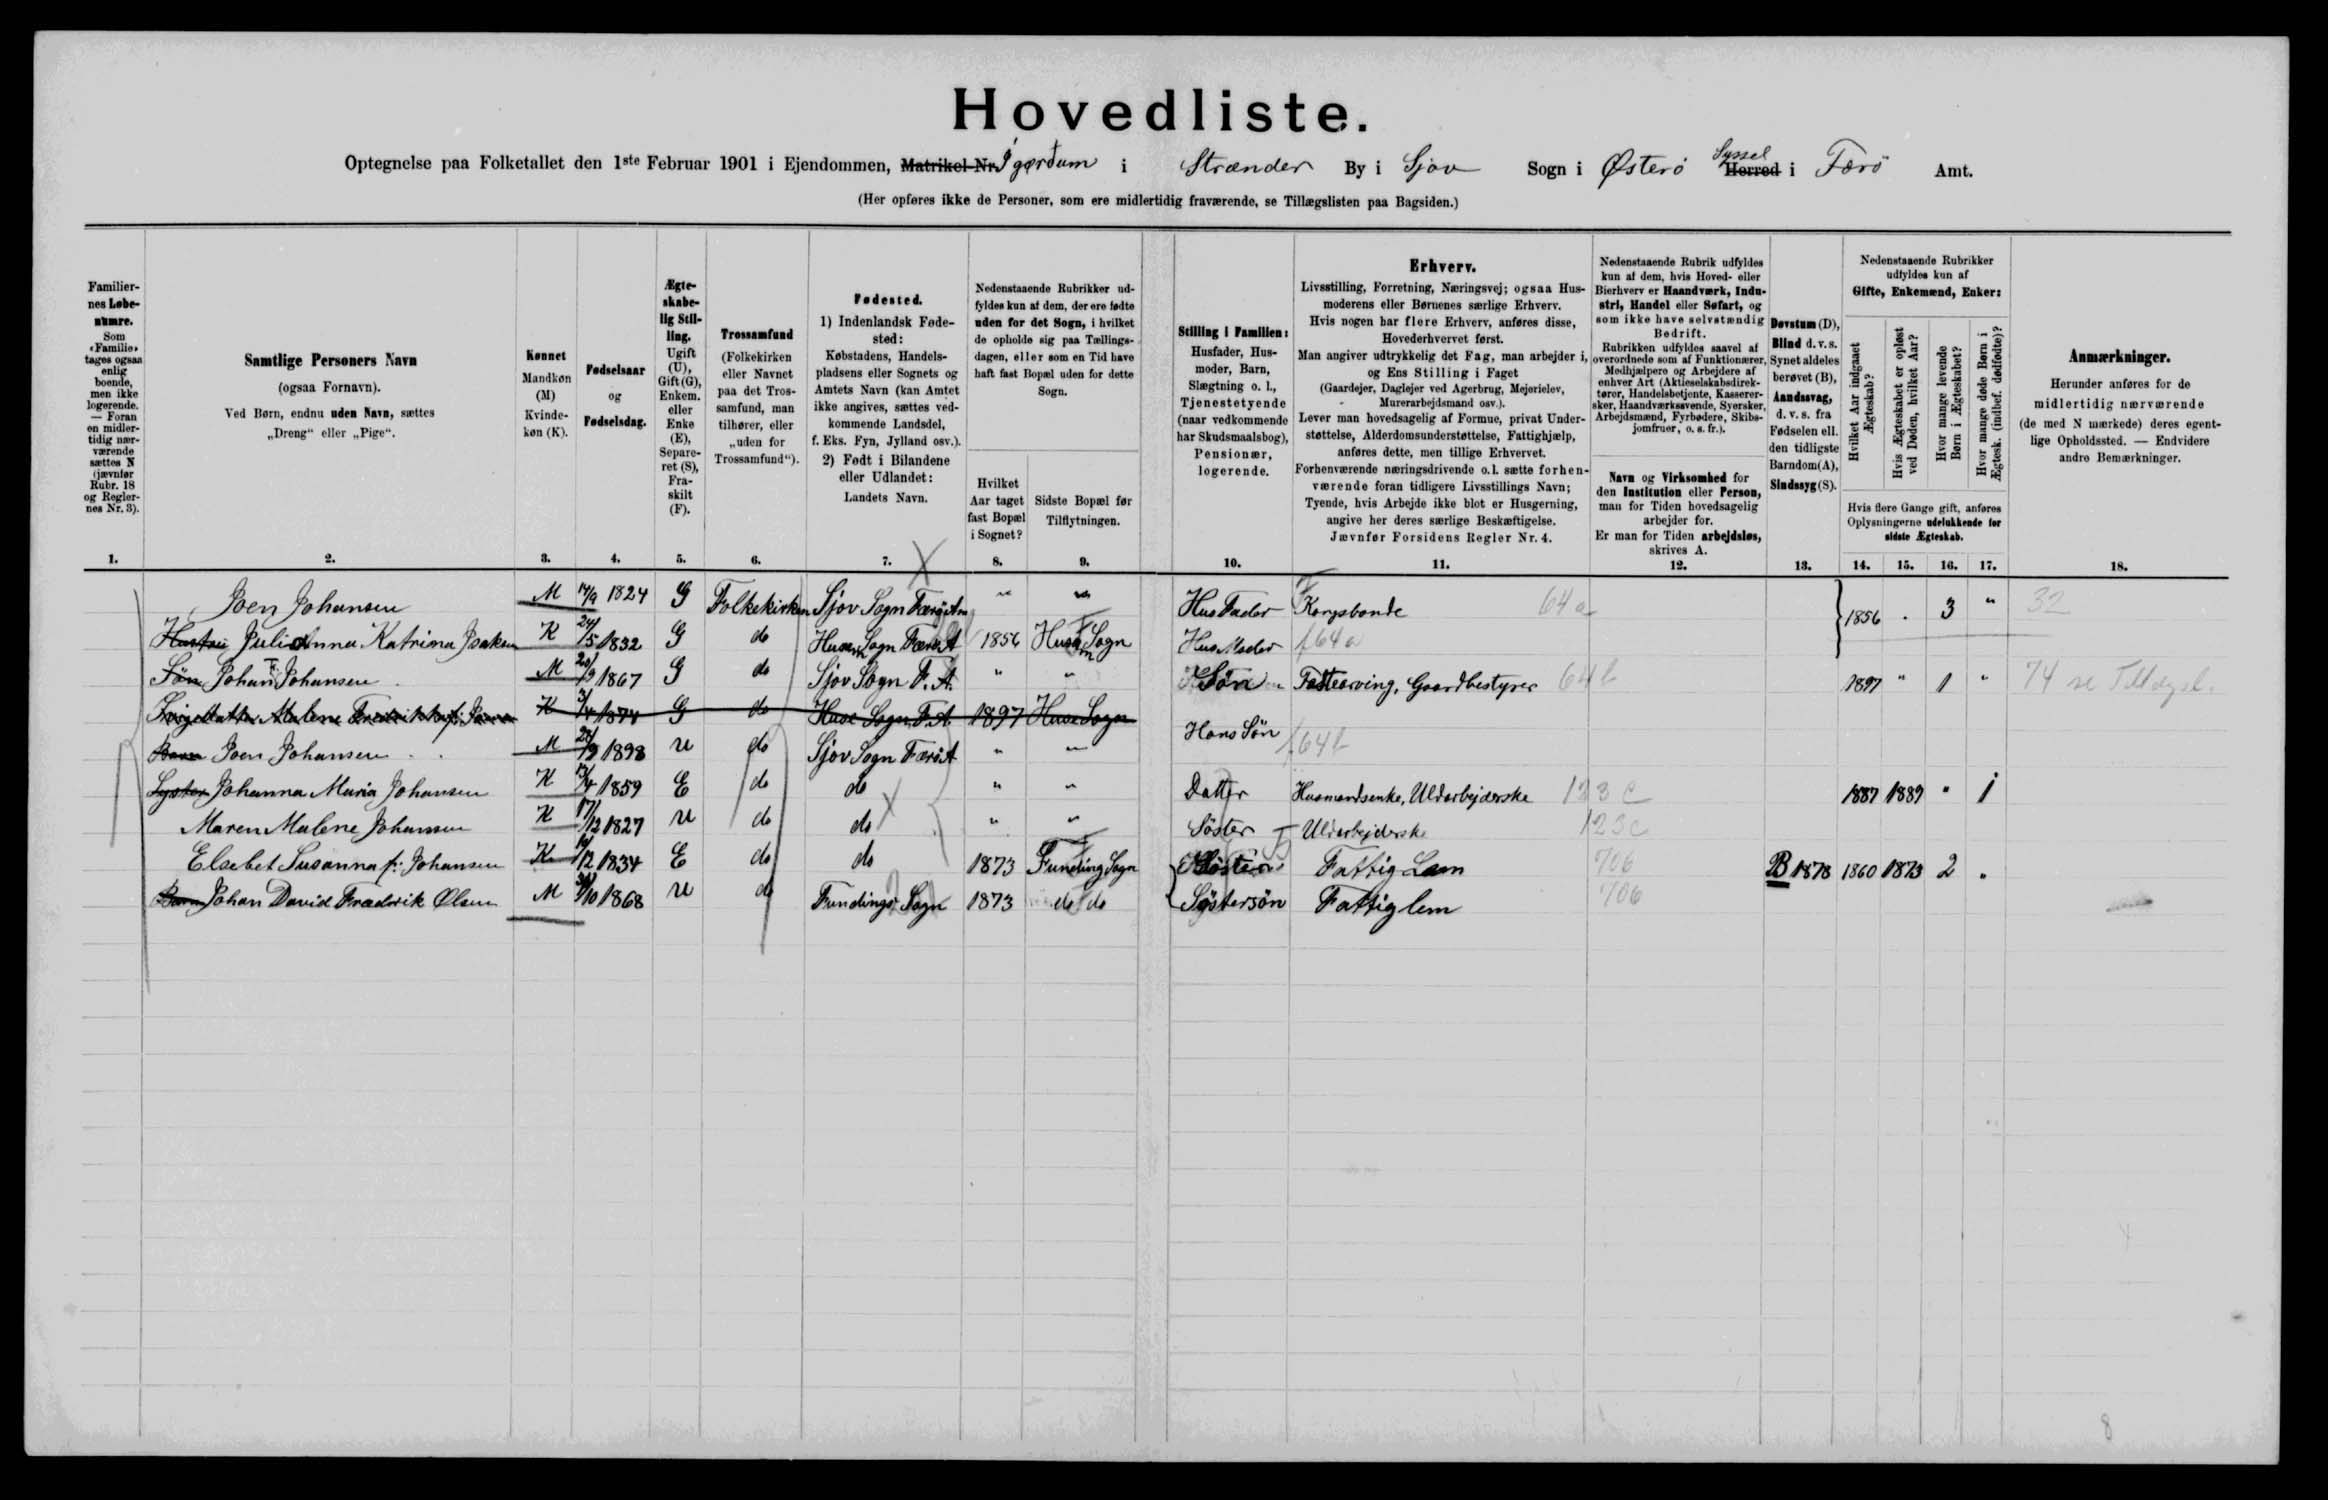 Hovedliste.
Optegnelse paa Folketallet den 1ste Februar 1901 i Ejendommen, Matrikel-Nr. Igærdum i Strænder By i Sjov Sogn i Østerö Syssel Herred i Færö Amt.
(Her opføres ikke de Personer, som ere midlertidig fraværende, se Tillægslisten paa Bagsiden.)
Familiernes Løbenumre.
Som «Familie» tages ogsaa enlig boende, men ikke logerende. — Foran en midlertidig nærværende sættes N (jævnfør Rubr. 18 og Reglernes Nr. 3).
Samtlige Personers Navn
(ogsaa Fornavn).
Ved Børn, endnu uden Navn, sættes „Dreng“ eller „Pige“.
Kønnet
Mandkøn (M)
Kvindekøn (K).
Fødselsaar og Fødselsdag.
Ægteskabelig Stilling.
Ugift (U), Gift (G), Enkem. eller Enke (E), Separeret (S), Fraskilt (F).
Trossamfund
(Folkekirken eller Navnet paa det Trossamfund, man tilhører, eller „uden for Trossamfund“).
Fødested.
1) Indenlandsk Fødested:
Købstadens, Handelspladsens eller Sognets og Amtets Navn (kan Amtet ikke angives, sættes vedkommende Landsdel, f. Eks. Fyn, Jylland osv.).
2) Født i Bilandene eller Udlandet:
Landets Navn.
Nedenstaaende Rubrikker udfyldes kun af dem, der ere fødte uden for det Sogn, i hvilket de opholde sig paa Tællingsdagen, eller som en Tid have haft fast Bopæl uden for dette Sogn.
Hvilket Aar taget fast Bopæl i Sognet?
Sidste Bopæl før Tilflytningen.
Stilling i Familien:
Husfader, Husmoder, Barn, Slægtning o. l., Tjenestetyende (naar vedkommende har Skudsmaalsbog), Pensionær, logerende.
Erhverv.
Livsstilling, Forretning, Næringsvej; ogsaa Husmoderens eller Børnenes særlige Erhverv.
Hvis nogen har flere Erhverv, anføres disse, Hovederhvervet først.
Man angiver udtrykkelig det Fag, man arbejder i, og Ens Stilling i Faget
(Gaardejer, Daglejer ved Agerbrug, Mejerielev, Murerarbejdsmand osv.).
Lever man hovedsagelig af Formue, privat Understøttelse, Alderdomsunderstøttelse, Fattighjælp, anføres dette, men tillige Erhvervet.
Forhenværende næringsdrivende o.l. sætte forhenværende foran tidligere Livsstillings Navn; Tyende, hvis Arbejde ikke blot er Husgerning, angive her deres særlige Beskæftigelse.
Jævnfør Forsidens Regler Nr. 4.
Nedenstaaende Rubrik udfyldes kun af dem, hvis Hoved- eller Bierhverv er Haandværk, Industri, Handel eller Søfart, og som ikke have selvstændig Bedrift.
Rubrikken udfyldes saavel af overordnede som af Funktionærer, Medhjælpere og Arbejdere af enhver Art (Aktieselskabsdirektører, Handelsbetjente, Kasserersker, Haandværkssvende, Syersker, Arbejdsmænd, Fyrbødere, Skibsjomfruer, o. s. fr.).
Navn og Virksomhed for den Institution eller Person, man for Tiden hovedsagelig arbejder for.
Er man for Tiden arbejdsløs, skrives A.
Døvstum (D), Blind d. v. s. Synet aldeles berøvet (B), Aandssvag, d. v. s. fra Fødselen ell. den tidligste Barndom (A), Sindssyg (S).
Nedenstaaende Rubrikker udfyldes kun af Gifte, Enkemænd, Enker:
Hvilket Aar indgaaet Ægteskab?
Hvis Ægteskabet er opløst ved Døden, hvilket Aar?
Hvor mange levende Børn i Ægteskabet?
Hvor mange døde Børn i Ægtesk. (indbef. dødfødte)?
Hvis flere Gange gift, anføres Oplysningerne udelukkende for sidste Ægteskab.
Anmærkninger.
Herunder anføres for de midlertidig nærværende (de med N mærkede) deres egentlige Opholdssted. — Endvidere andre Bemærkninger.
1. 2. 3. 4. 5. 6. 7. 8. 9. 10. 11. 12. 13. 14. 15. 16. 17. 18.
Joen Johansen M 14/9 1824 G Folkekirken Sjov Sogn Færö Am " " Hus Fader Kongsbonde 64a 1856 . 3 " 32
Hustru Julianna Katrina Isaksen K 24/5 1832 G do Huse Sogn Færö A 1856 Huse Sogn Hus Moder 64a
Sön Johan F. Johansen M 20/9 1867 G do Sjov Sogn F. A. " " Sön Fæstearving, Gaardbestyrer 64b 1897 " 1 " 74 se Tillægsl.
Malene K 3/4 1874 G do Huse Sogn F. A 1897 Huse Sogn
Barn Joen Johansen M 28/9 1898 U do Sjov Sogn Færö A " " Hans Sön 64b
Syster Johanna Maria Johansen K 13/4 1859 E do do " " Datter Husmandsenke, Uldarbejderske 123c 1887 1889 " 1
Maren Malene Johansen K 17/12 1827 U do do " " Söster Uldarbejderske 123c
Elsebet Susanna f. Johansen K 12 1834 E do do 1873 Funding Sogn Söster Fattig Lem 706 B 1878 1860 1873 2 "
Barn Johan David Fredrik Olsen M /10 1868 U do Fundings Sogn 1873 do do Söstersön Fattiglem 706
8